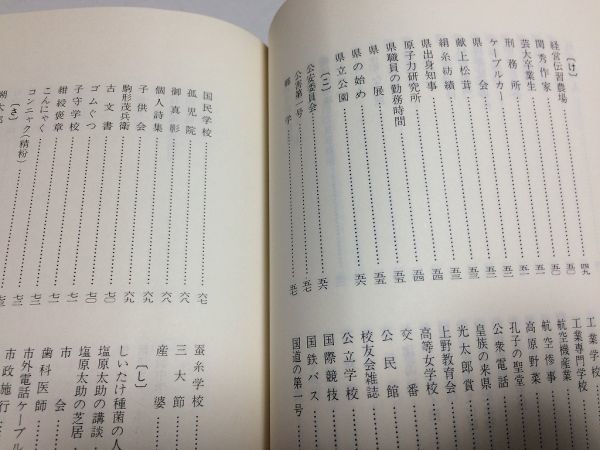 〔け〕
経営伝習農場……………五〇
閨秀作家……………五〇
芸大卒業生……………五一
刑務所……………五一
ケーブルカー……………五二
県会……………五二
献上松茸……………五三
絹糸紡績……………五三
県出身知事……………五四
原子力研究所……………五四
県職員の勤務時間……………五四
県展……………五五
県の始め……………五六
県立公園……………五六
〔こ〕
公安委員会……………五六
公害第一号……………五七
郷学……………五七
工業学校
工業専門学校
航空機産業
航空惨事
高原野菜
孔子の聖堂
公衆電話
皇族の来県
光太郎賞
上野教育会
高等女学校
交番
公民館
校友会雑誌
公立学校
国際競技
国鉄バス
国道の第一号
国民学校……………六七
孤児院……………六八
御真影……………六八
個人詩集……………六九
子供会……………六九
駒形茂兵衛……………六九
古文書……………七〇
ゴムぐつ……………七〇
子守学校……………七一
紺綬褒章……………七一
こんにゃく……………七一
コンニャク(精粉)……………七二
〔さ〕
朔太郎
蚕糸学校
三大節
産婆
〔し〕
しいたけ種菌の人
塩原太助の講談
塩原太助の芝居
市会
歯科医師
市外電話ケーブル
市政施行